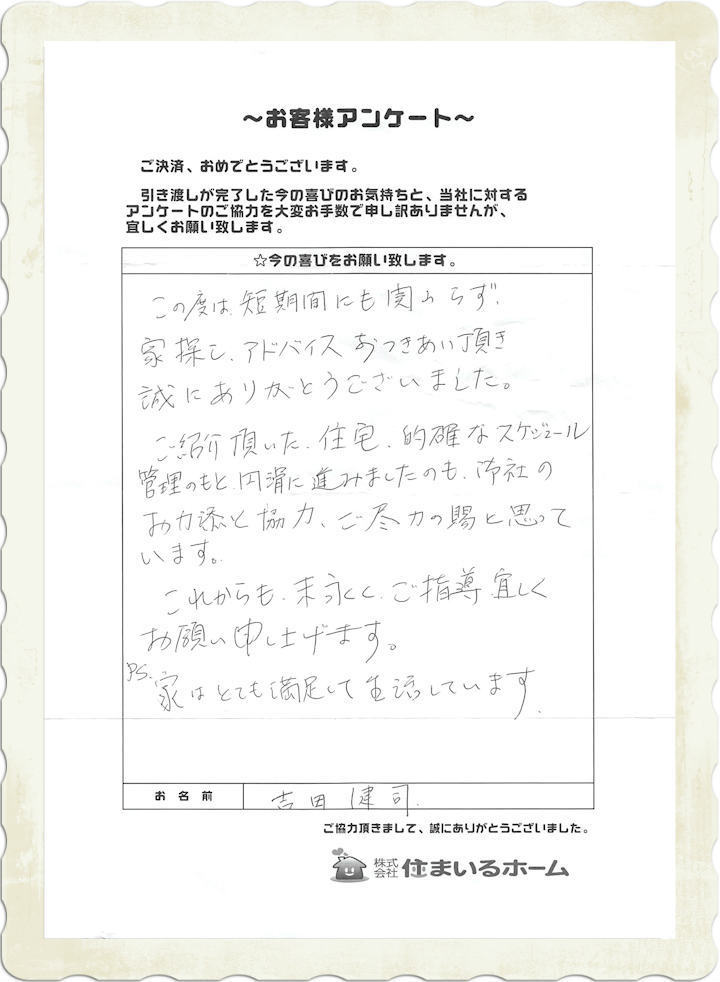 ～お客様アンケート～
ご決済、おめでとうございます。
引き渡しが完了した今の喜びのお気持ちと、当社に対する
アンケートのご協力を大変お手数で申し訳ありませんが、
宜しくお願い致します。
☆今の喜びをお願い致します。
この度は、短期間にも関わらず、
家探し、アドバイスおつきあい頂き
誠にありがとうございました。
ご紹介頂いた、住宅、的確なスケジュール
管理のもと、円滑に進みましたのも、御社の
お力添と協力、ご尽力の賜と思って
います。
これからも、末永く、ご指導、宜しく
お願い申し上げます。
PS.
家はとても満足して生活しています。
お名前
吉田健司
ご協力頂きまして、誠にありがとうございました。
株式会社 住まいるホーム